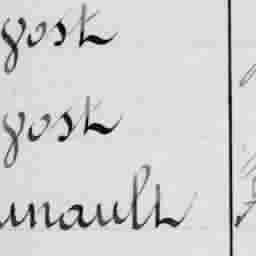 yost
yost
unault